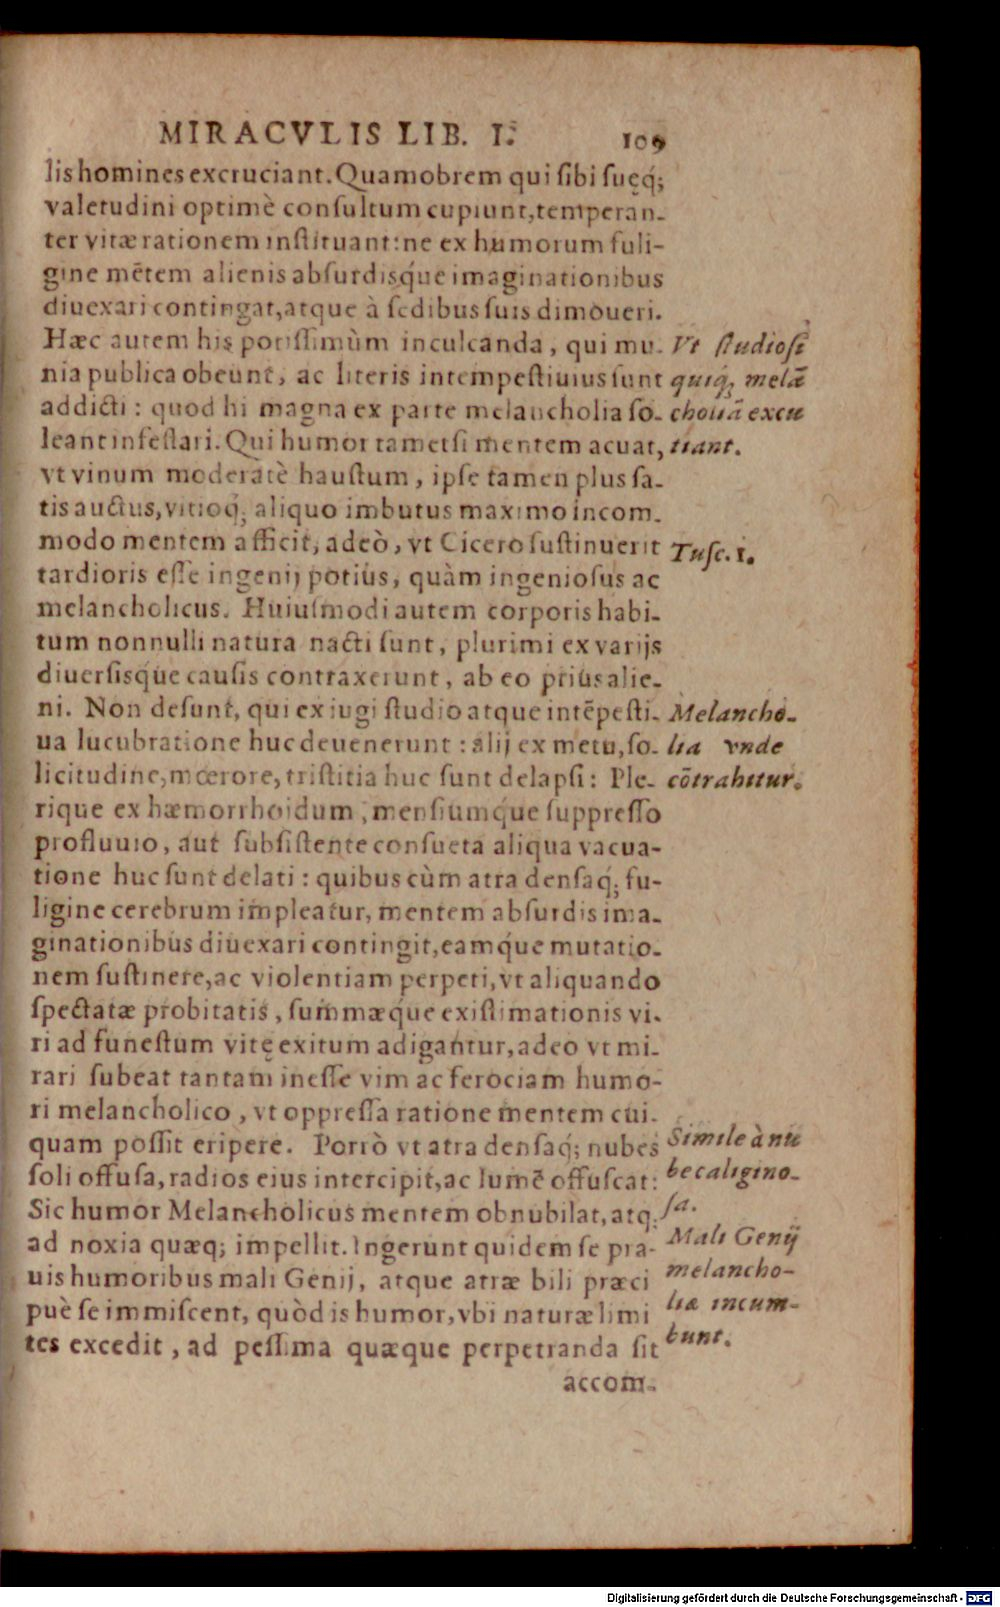 MIRACVLIS LIB. I. 109
lis homines excruciant. Quamobrem qui sibi suęq́;
valetudini optimè consultum cupiunt, temperan-
ter vitæ rationem instituant: ne ex humorum fuli-
gine mētem alienis absurdisq́ue imaginationibus
diuexari contingat, atque à sedibus suis dimoueri.
Hæc autem his potissimùm inculcanda, qui mu-
nia publica obeunt, ac literis intempestiuius sunt
addicti: quod hi magna ex parte melancholia so-
leant infestari. Qui humor tametsi mentem acuat,
vt vinum moderatè haustum, ipse tamen plus sa-
tis auctus, vitioq́; aliquo imbutus maximo incom-
modo mentem afficit, adeò, vt Cicero sustinuerit
tardioris esse ingenij potius, quàm ingeniosus ac
melancholicus. Huiusmodi autem corporis habi-
tum nonnulli natura nacti sunt, plurimi ex varijs
diuersisq́ue causis contraxerunt, ab eo prius alie-
ni. Non desunt, qui ex iugi studio atque intēpesti-
ua lucubratione huc deuenerunt: alij ex metu, so-
licitudine, mœrore, tristitia huc sunt delapsi: Ple-
rique ex hæmorrhoidum, mensiumq́ue suppresso
profluuio, aut subsistente consueta aliqua vacua-
tione huc sunt delati: quibus cùm atra densaq́; fu-
ligine cerebrum impleatur, mentem absurdis ima-
ginationibus diuexari contingit, eamq́ue mutatio-
nem sustinere, ac violentiam perpeti, vt aliquando
spectatæ probitatis, summæq́ue existimationis vi-
ri ad funestum vitę exitum adigantur, adeo vt mi-
rari subeat tantam inesse vim ac ferociam humo-
ri melancholico, vt oppressa ratione mentem cui-
quam possit eripere. Porrò vt atra densaq́; nubes
soli offusa, radios eius intercipit, ac lumē offuscat:
Sic humor Melancholicus mentem obnubilat, atq;
ad noxia quæq; impellit. Ingerunt quidem se pra-
uis humoribus mali Genij, atque atræ bili præci
puè se immiscent, quòd is humor, vbi naturæ limi
tes excedit, ad pessima quæque perpetranda sit
accom-
Vt studiosi
quiq́; melā
choliā excu
tiant.
Tusc. 1.
Melancho-
lia vnde
cōtrahitur.
Simile à nu
be caligino-
sa.
Mali Genij
melancho-
liæ incum-
bunt.
Digitalisierung gefördert durch die Deutsche Forschungsgemeinschaft - DFG